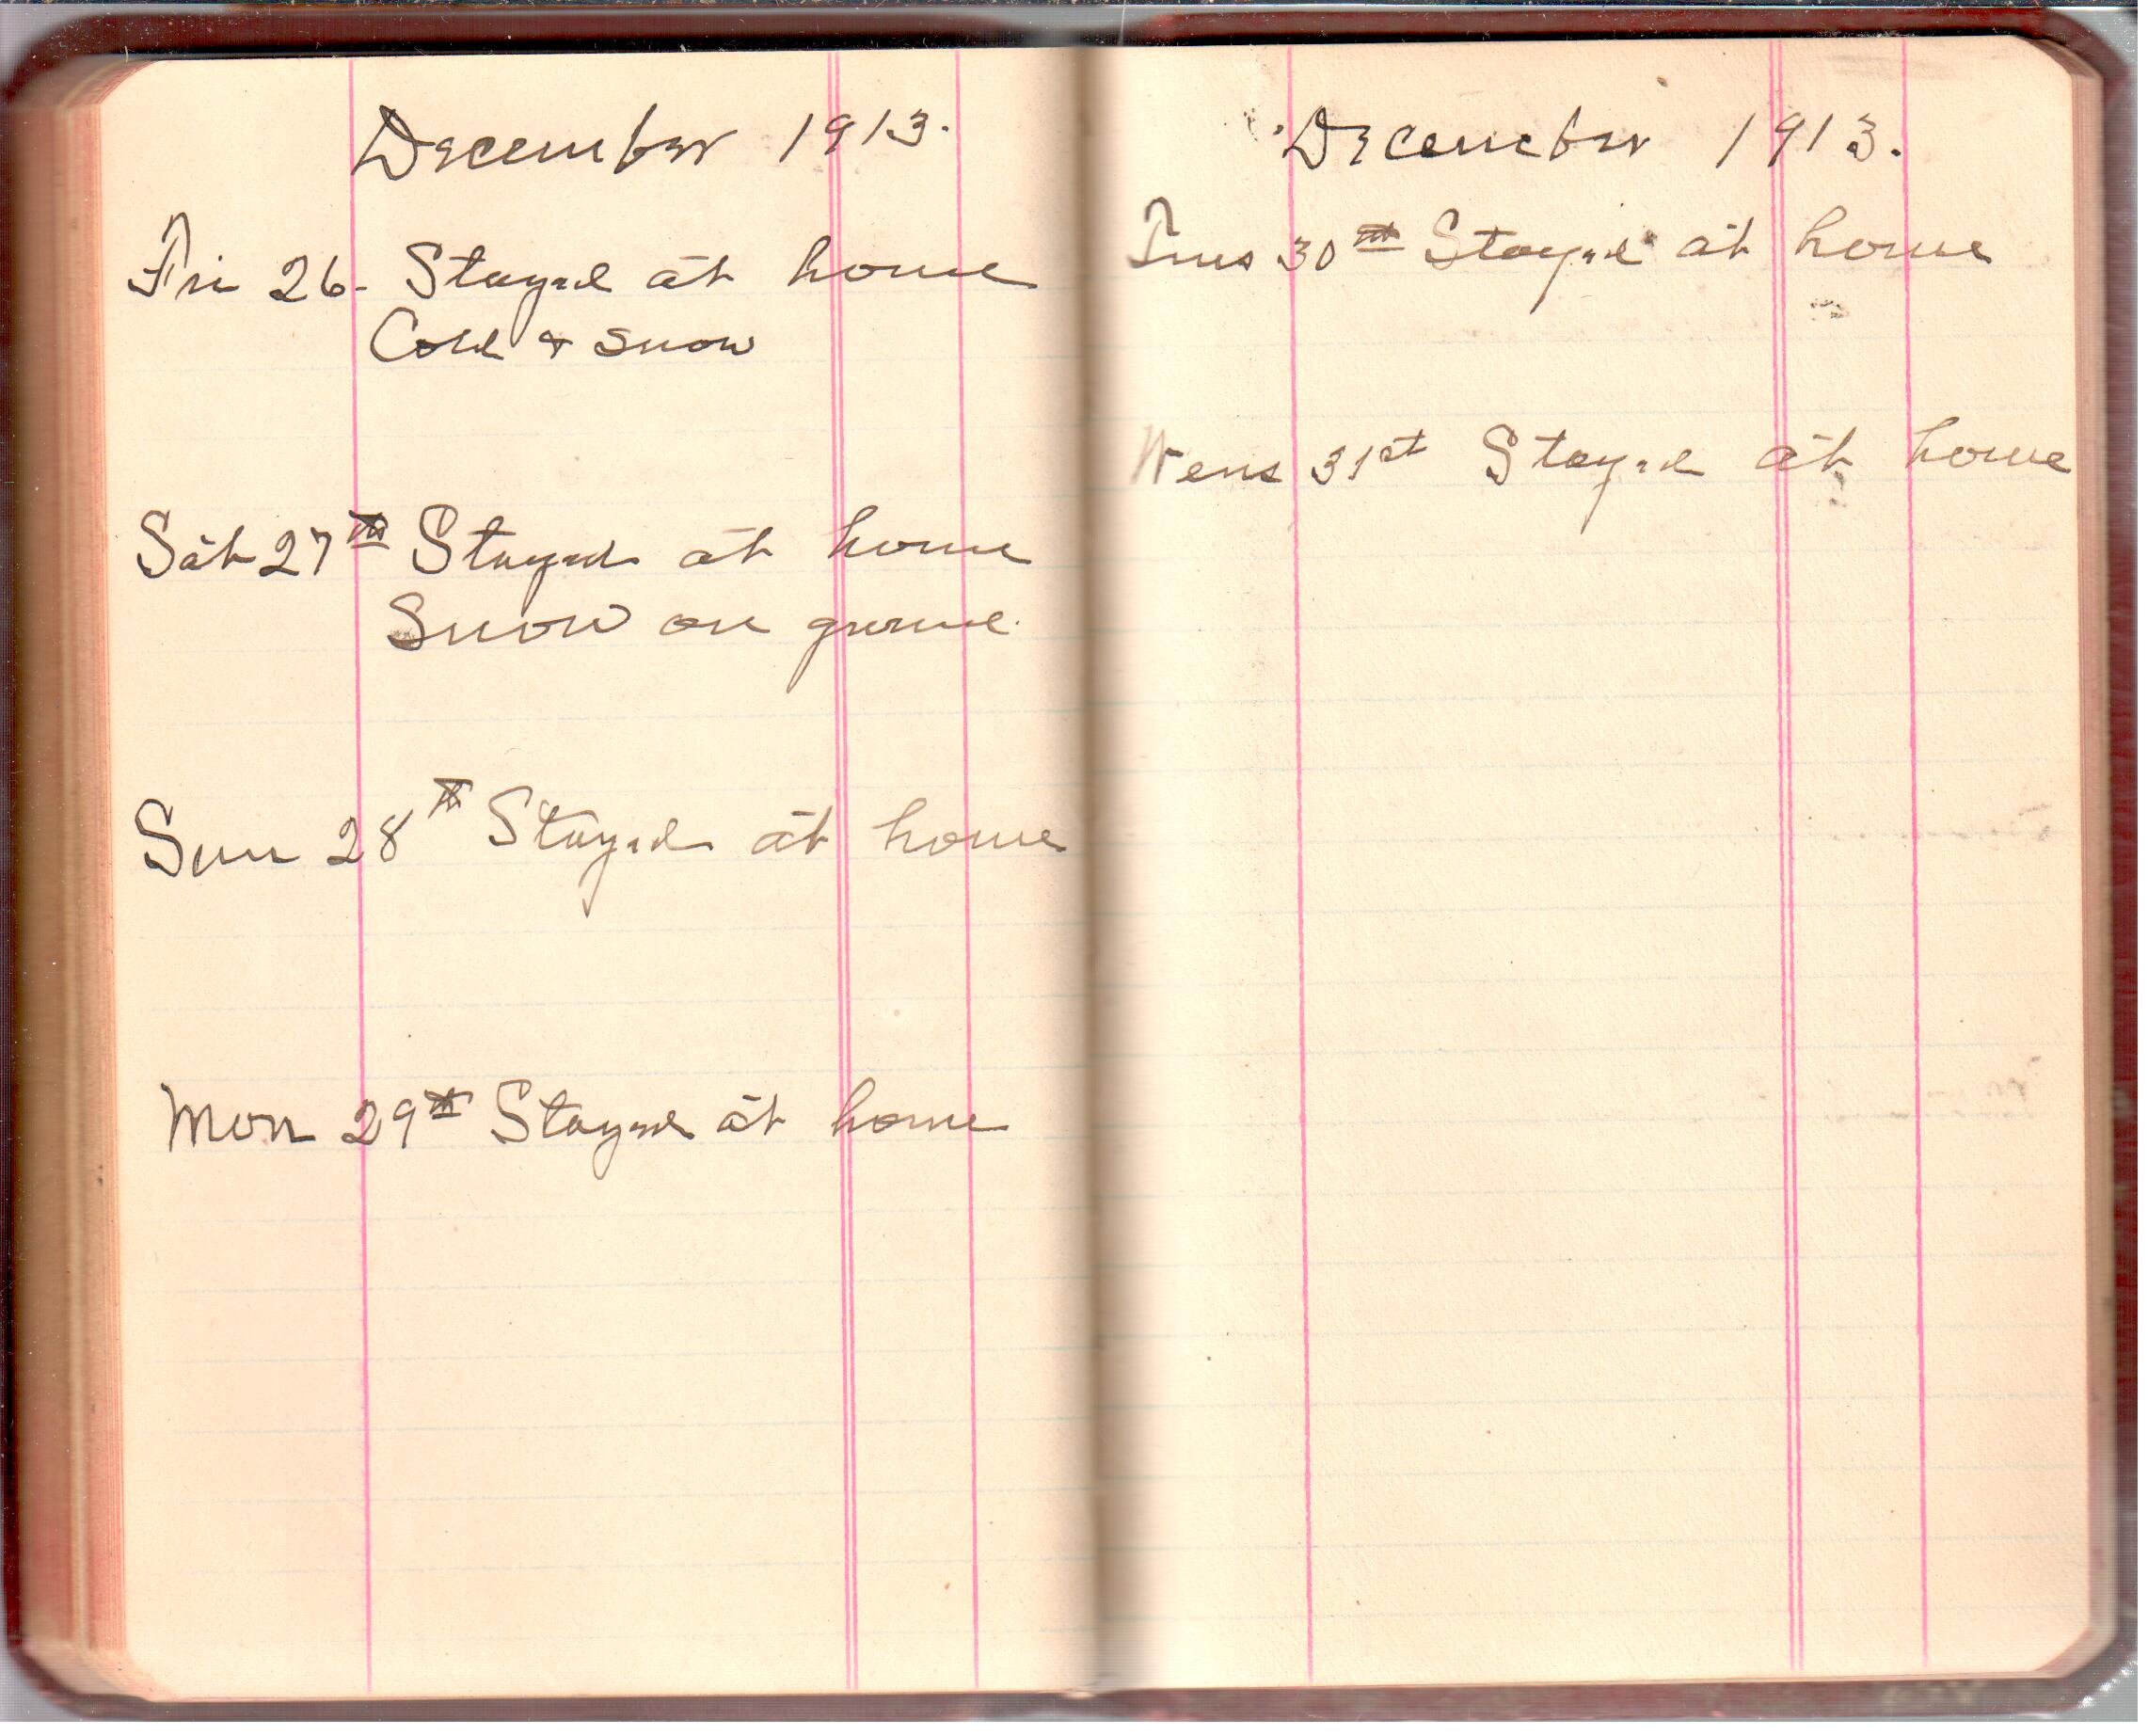 December 1913.
Fri 26. Stayed at home
Cold & snow
Sat 27th Stayed at home
Snow on ground.
Sun 28th Stayed at home
Mon 29th Stayed at home
December 1913.
Tues 30th Stayed at home
Wens 31st Stayed at home